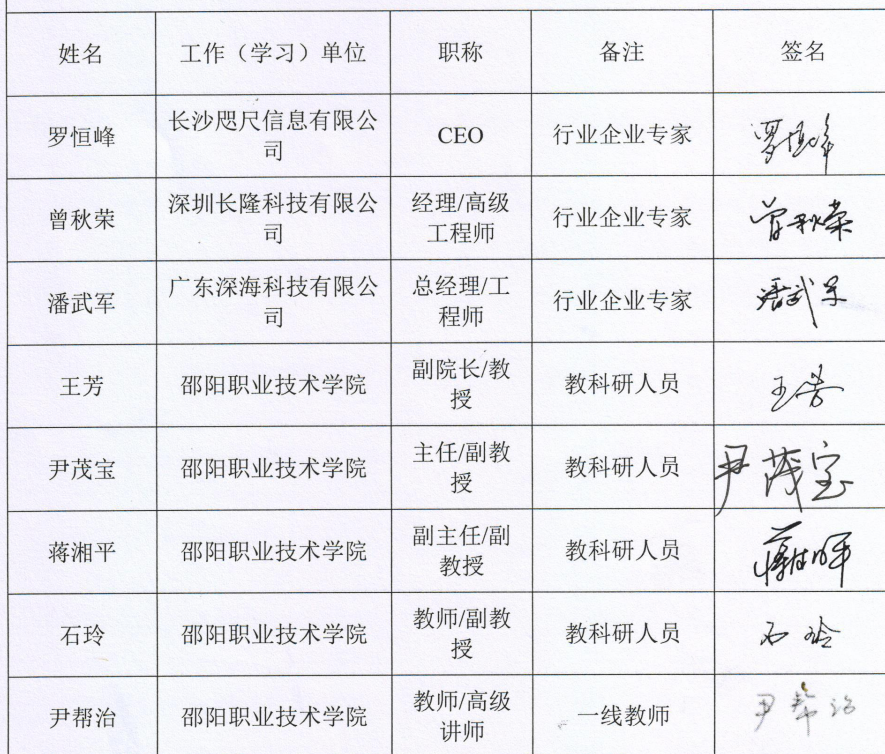 姓名 工作（学习）单位 职称 备注 签名
罗恒峰 长沙咫尺信息有限公 CEO 行业企业专家 罗恒峰
司
曾秋荣 深圳长隆科技有限公 经理/高级 行业企业专家 曾秋荣
司 工程师
潘武军 广东深海科技有限公 总经理/工 行业企业专家 潘武军
司 程师
王芳 邵阳职业技术学院 副院长/教 教科研人员 王芳
授
尹茂宝 邵阳职业技术学院 主任/副教 教科研人员 尹茂宝
授
蒋湘平 邵阳职业技术学院 副主任/副 教科研人员
教授
石玲 邵阳职业技术学院 教师/副教 教科研人员 石玲
授
尹帮治 邵阳职业技术学院 教师/高级 一线教师 尹帮治
讲师